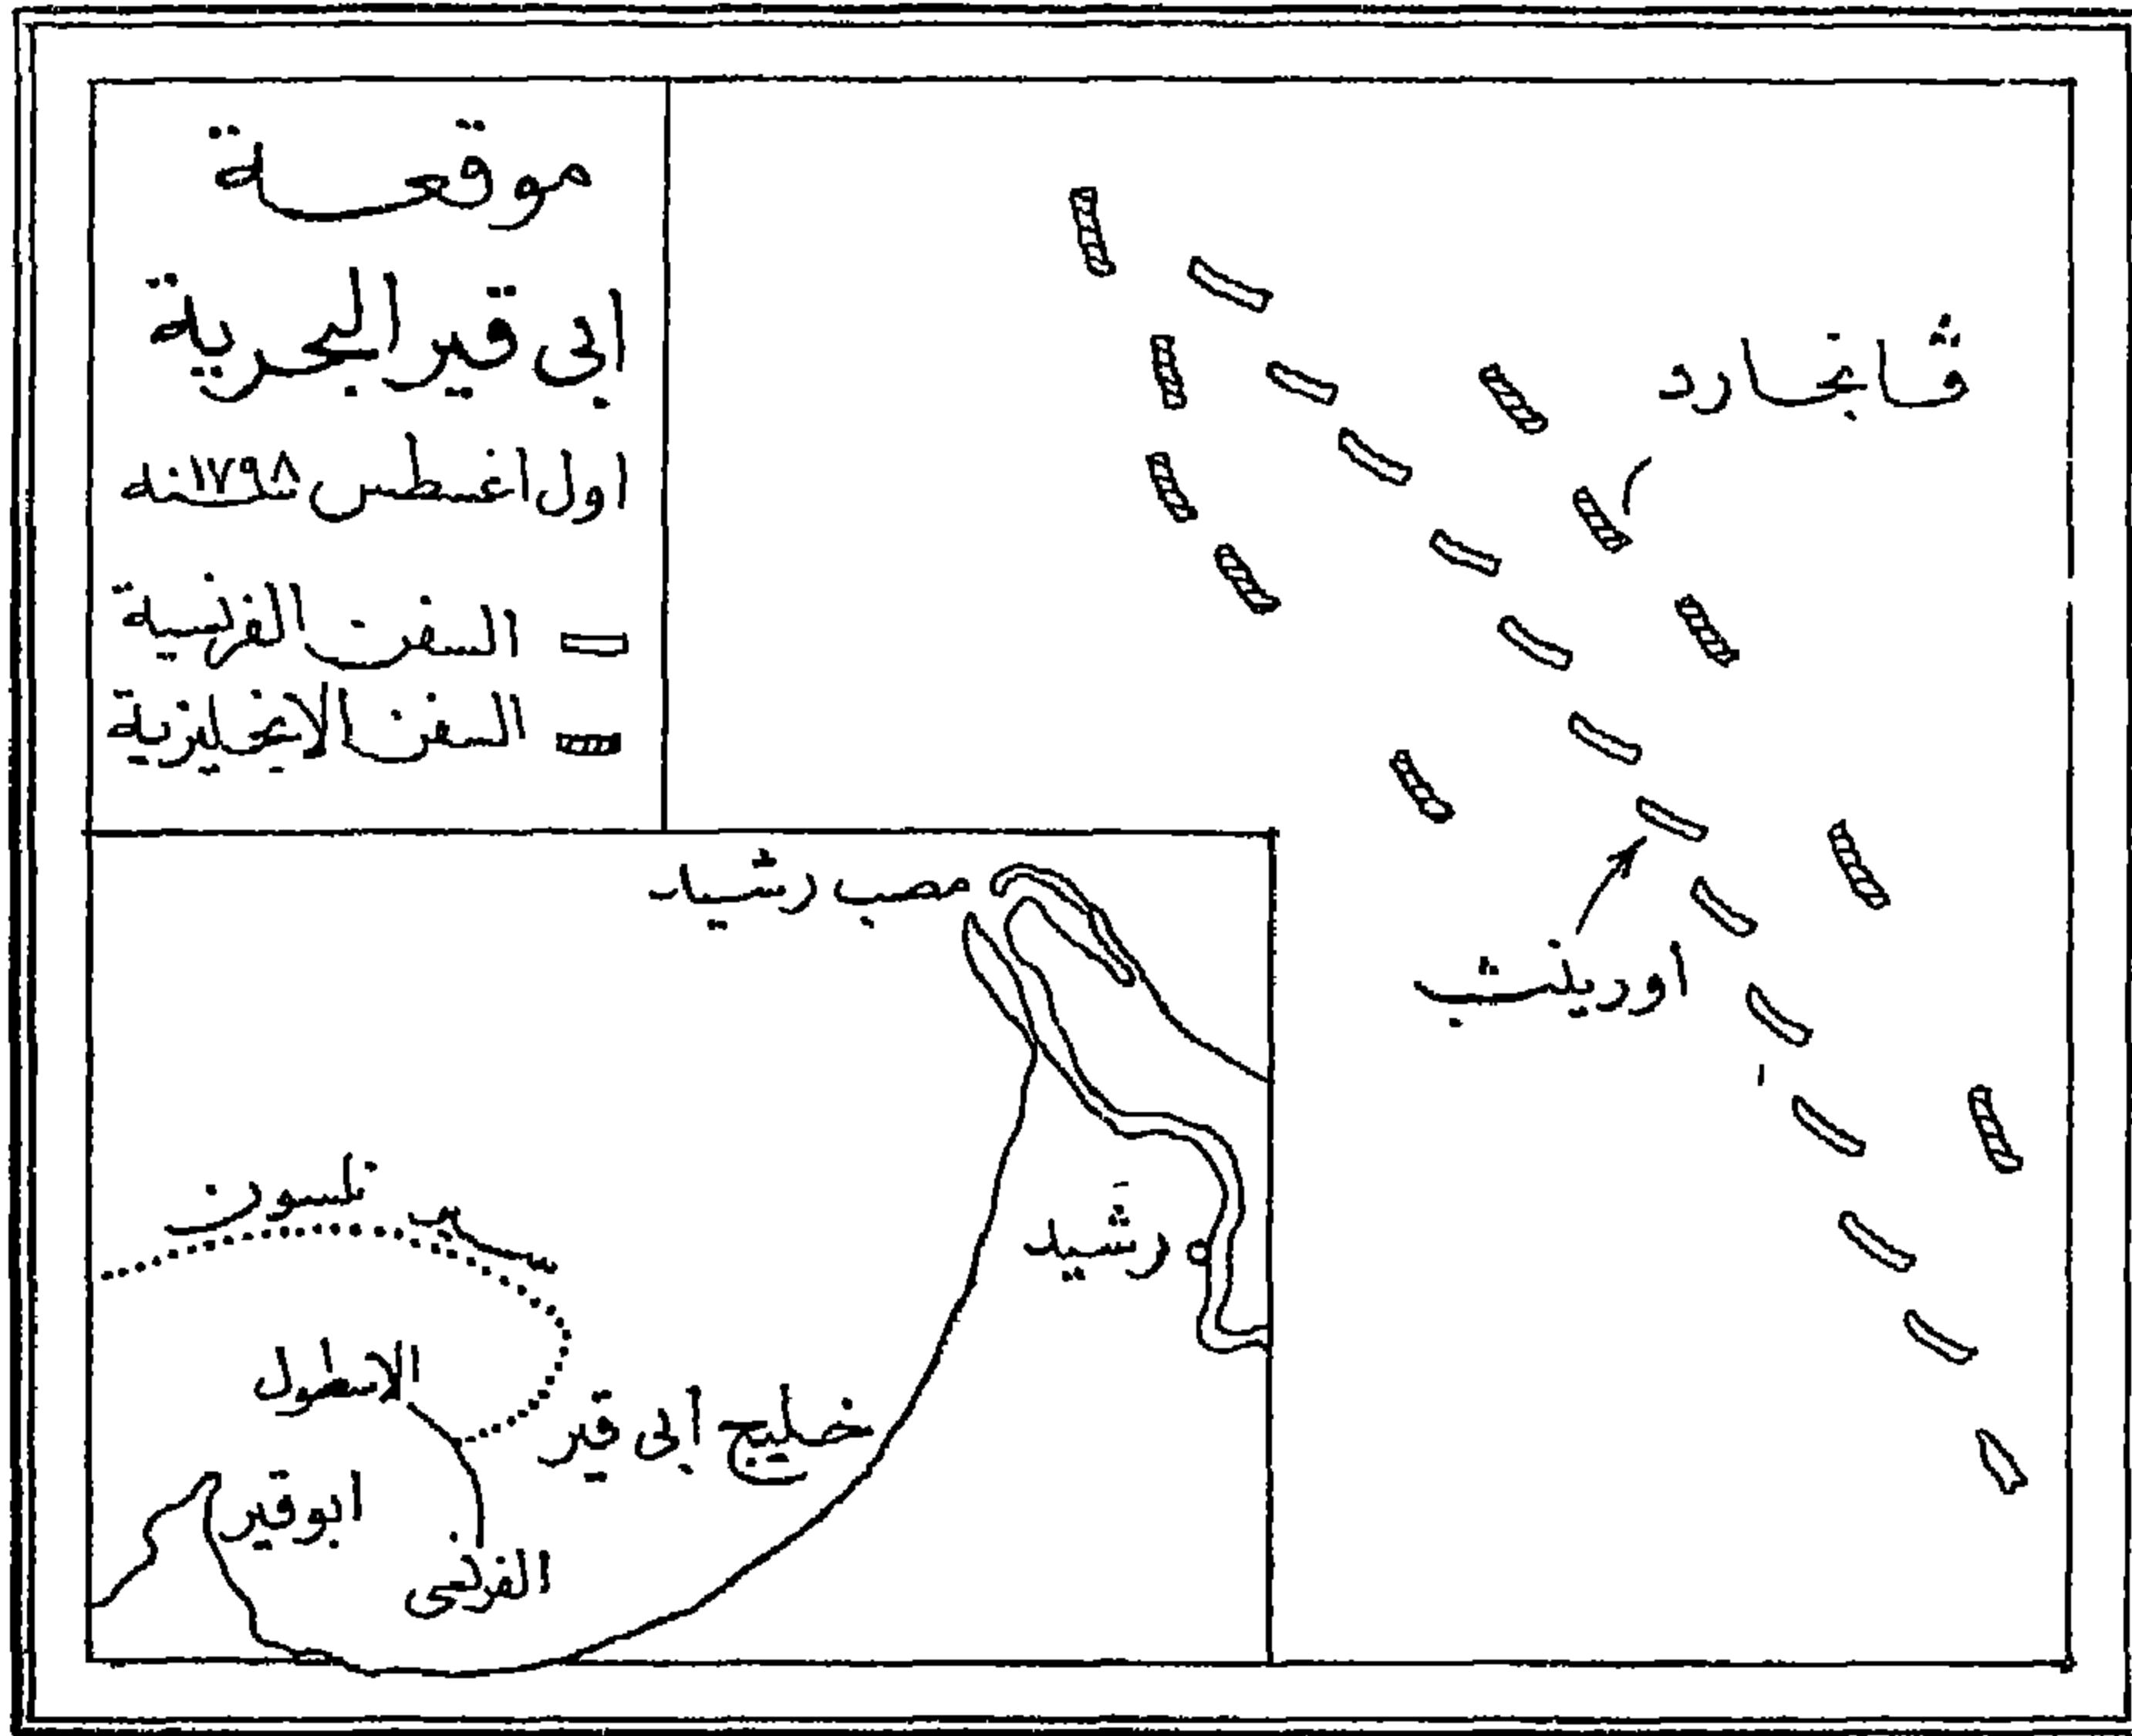 موقعة
ابى قير البحرية
اول اغسطس سنة ١٧٩٨
السفن الفرنسية
السفن الانجليزية
ڤانجارد
اورينت
مصب رشيد
رشيد
نلسون
الاسطول
الفرنسى
خليج ابى قير
ابو قير